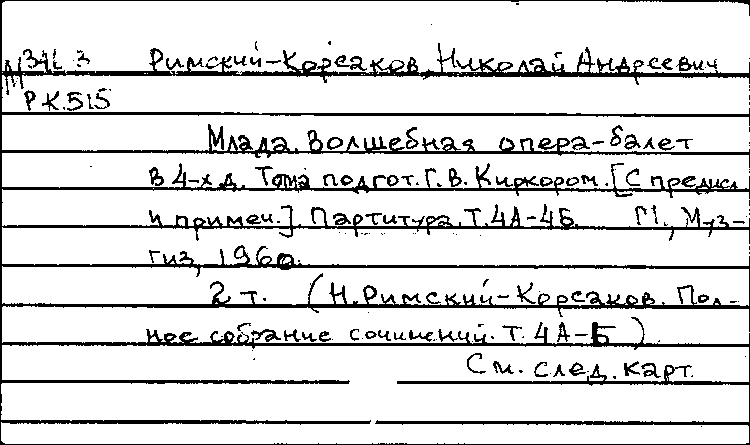 М34L 3 Римский-Корсаков, Николай Андреевич
Р-К.515
Млада. Волшебная опера-балет
в 4-х д. Тома подгот. Г. В. Киркором. [С предисл
и примеч.]. Партитура. Т. 4А-4Б. М., Муз-
гиз, 1960.
2 т. (Н. Римский-Корсаков. Пол-
ное собрание сочинений. Т. 4А-Б)
См. след. карт.